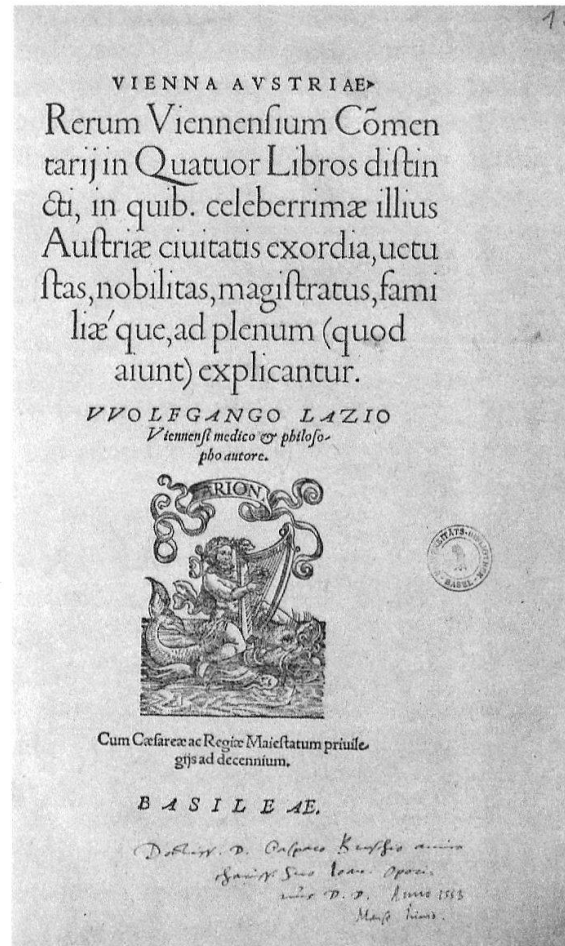 1.
VIENNA AVSTRIAE
Rerum Viennensium Cõmen
tarij in Quatuor Libros distin
cti, in quib. celeberrimæ illius
Austriæ ciuitatis exordia, uetu
stas, nobilitas, magistratus, fami
liæ´que, ad plenum (quod
aiunt) explicantur.
VVOLFGANGO LAZIO
Viennensi medico & philoso-
pho autore.
ARION.
Cum Cæsareæ ac Regiæ Maiestatum priuile-
gijs ad decennium.
BASILEAE.
D. Casparo Bruschio amico
suo Ioan. Opori-
nus D. D. Anno 1553
Mense